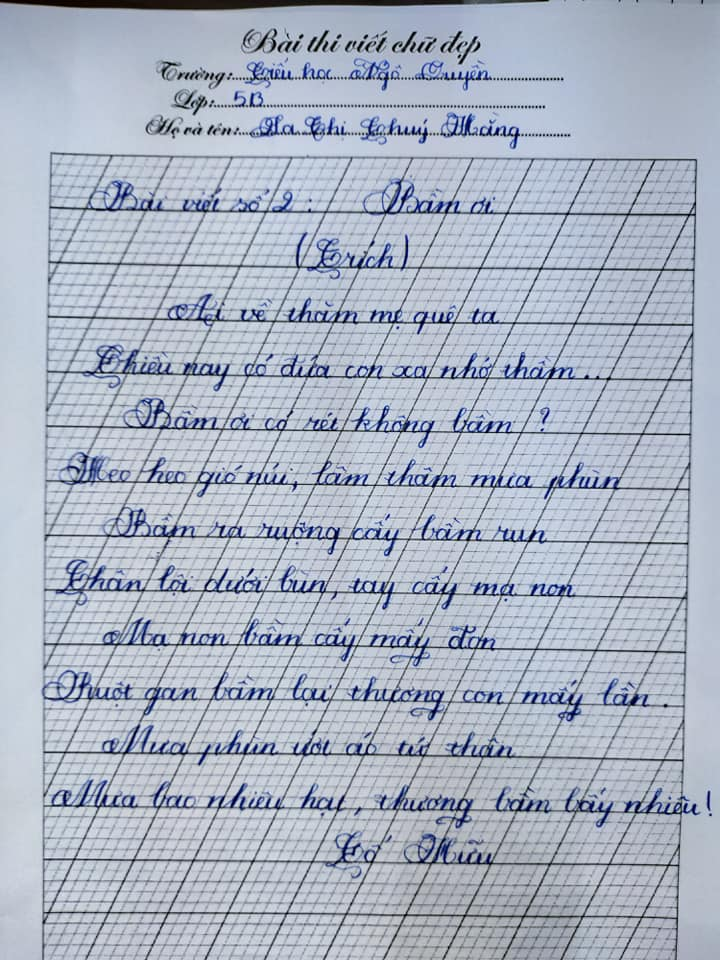 Bài thi viết chữ đẹp
Trường: Tiểu học Ngô Quyền
Lớp: 5B
Họ và tên: Hà Thị Thuý Hằng
Bài viết số 2: Bầm ơi
(Trích)
Ai về thăm mẹ quê ta
Chiều nay có đứa con xa nhớ thầm...
Bầm ơi có rét không bầm?
Heo heo gió núi, lâm thâm mưa phùn
Bầm ra ruộng cấy bầm run
Chân lội dưới bùn, tay cấy mạ non
Mạ non bầm cấy mấy đon
Ruột gan bầm lại thương con mấy lần.
Mưa phùn ướt áo tứ thân
Mưa bao nhiêu hạt, thương bầm bấy nhiêu!
Tố Hữu